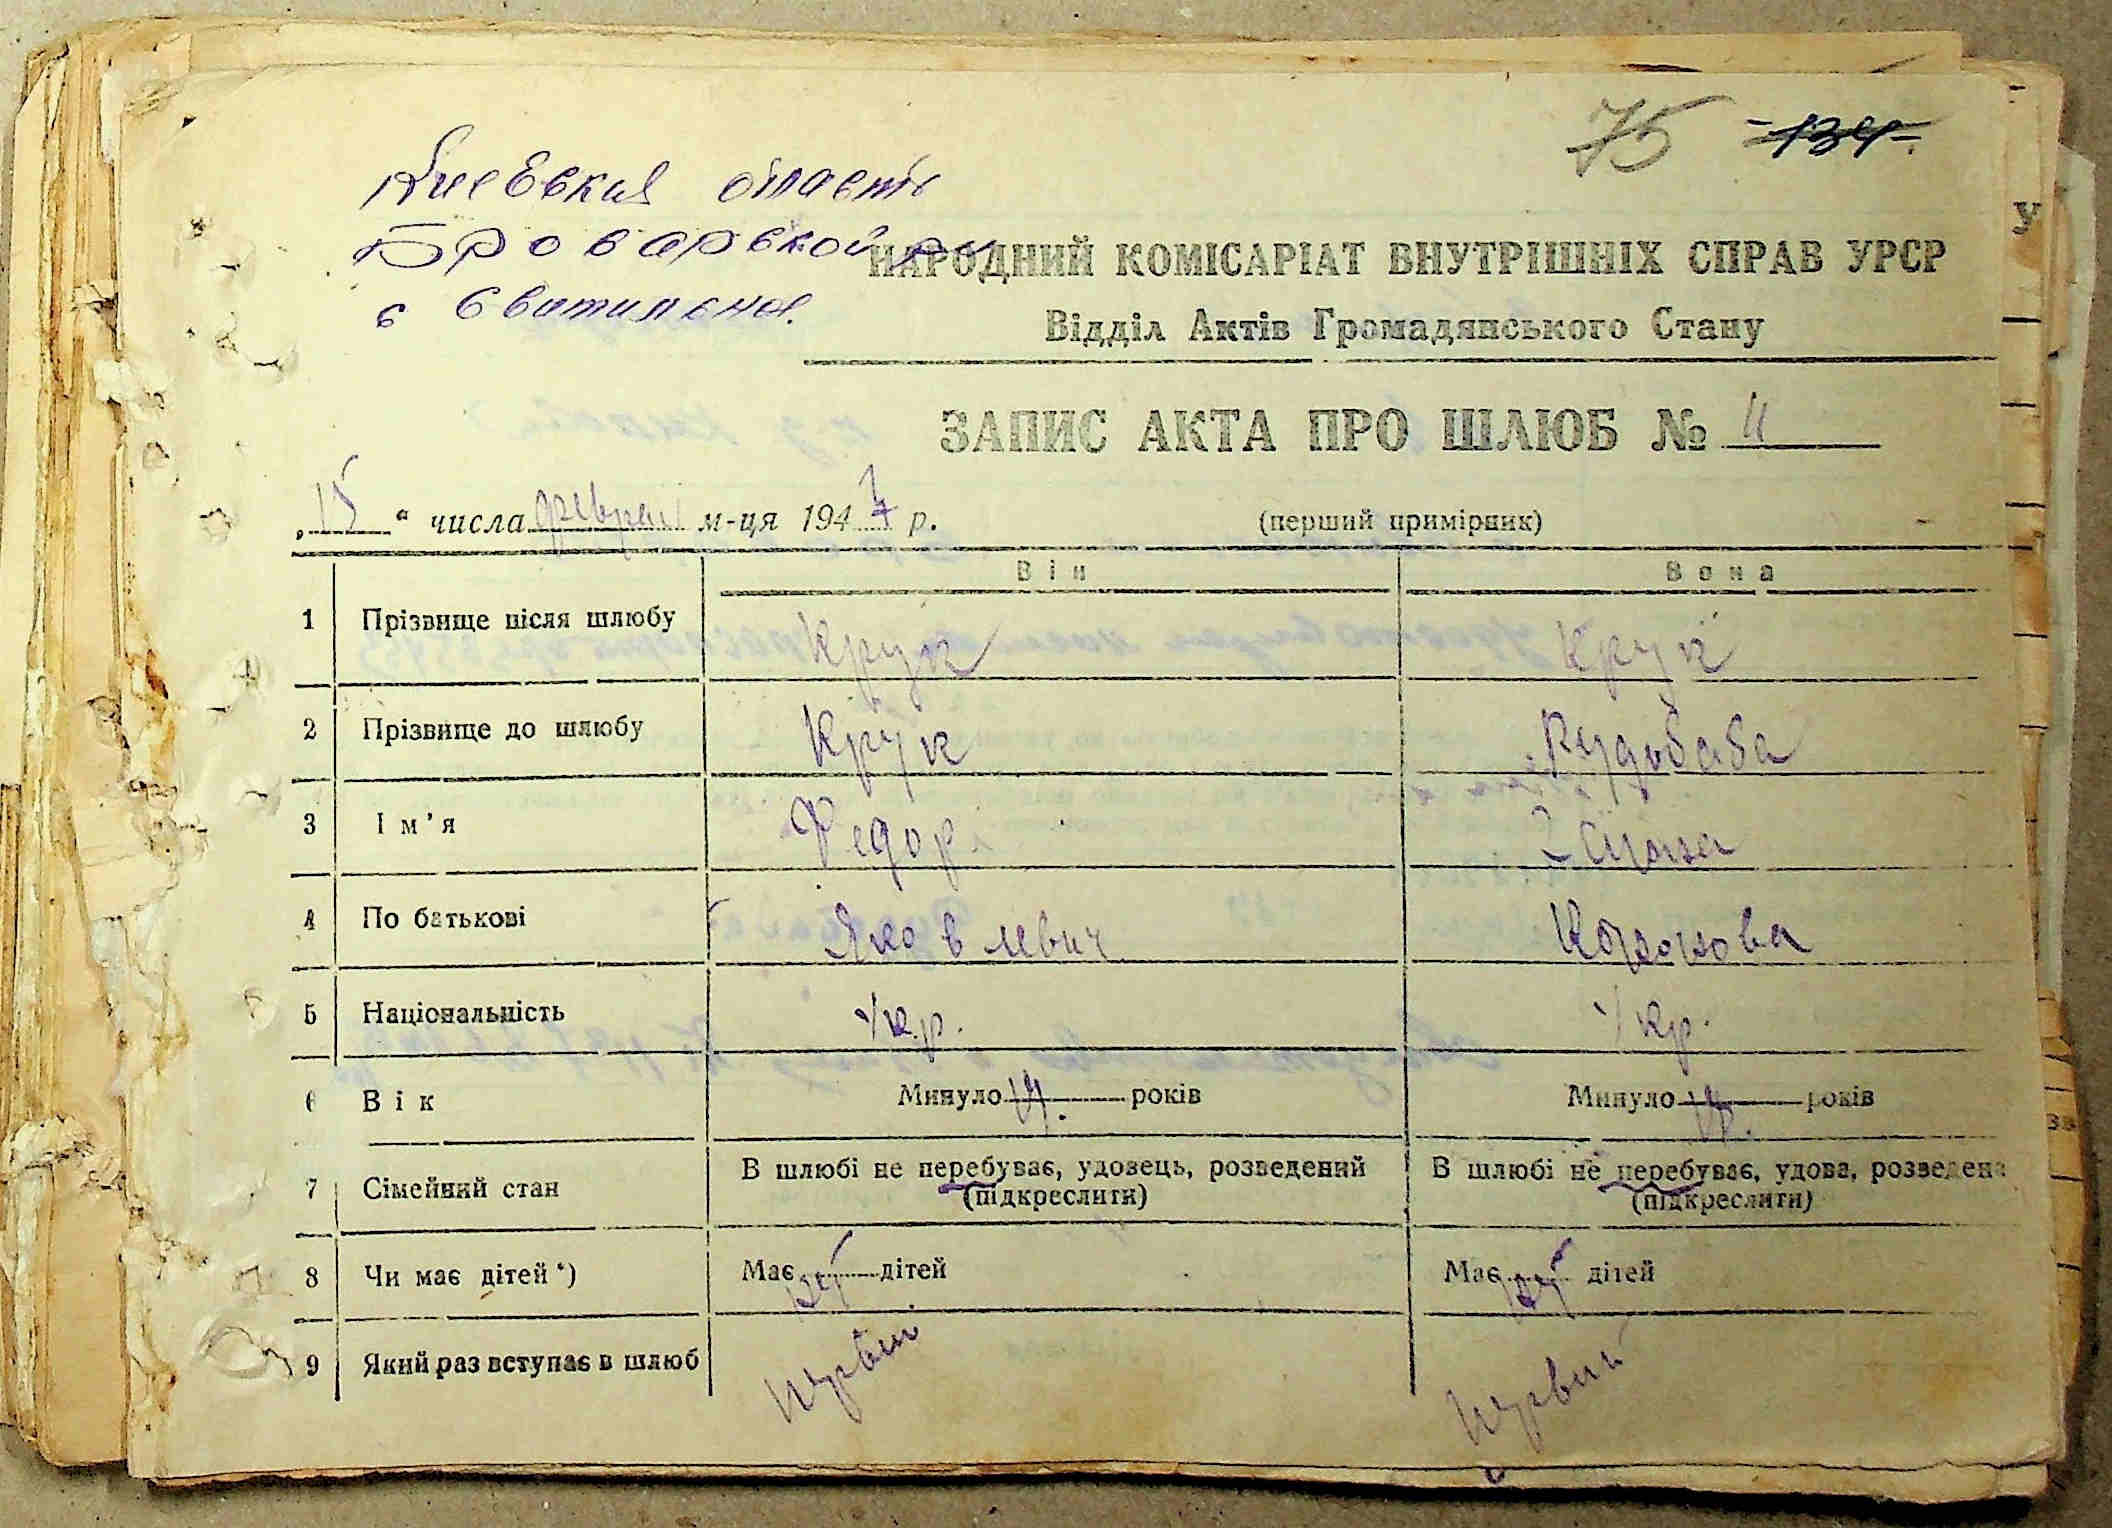 75 134
Киевская область
Броварской рн
с Світильенов.
НАРОДНИЙ КОМІСАРІАТ ВНУТРІШНІХ СПРАВ УРСР
Відділ Актів Громадянського Стану
ЗАПИС АКТА ПРО ШЛЮБ № 11
„15“ числа феврал м-ця 1947 р. (перший примірник)
Він Вона
1 Прізвище після шлюбу Крук Крук
2 Прізвище до шлюбу Крук Рудобаба
3 Ім’я Федор
4 По батькові Яковлевич Кононова
5 Національність Укр. Укр.
6 Вік Минуло років Минуло років
7 Сімейний стан В шлюбі не перебуває, удовець, розведений В шлюбі не перебуває, удова, розведена
(підкреслити) (підкреслити)
8 Чи має дітей*) Має дітей Має дітей
9 Який раз вступає в шлюб первий первий